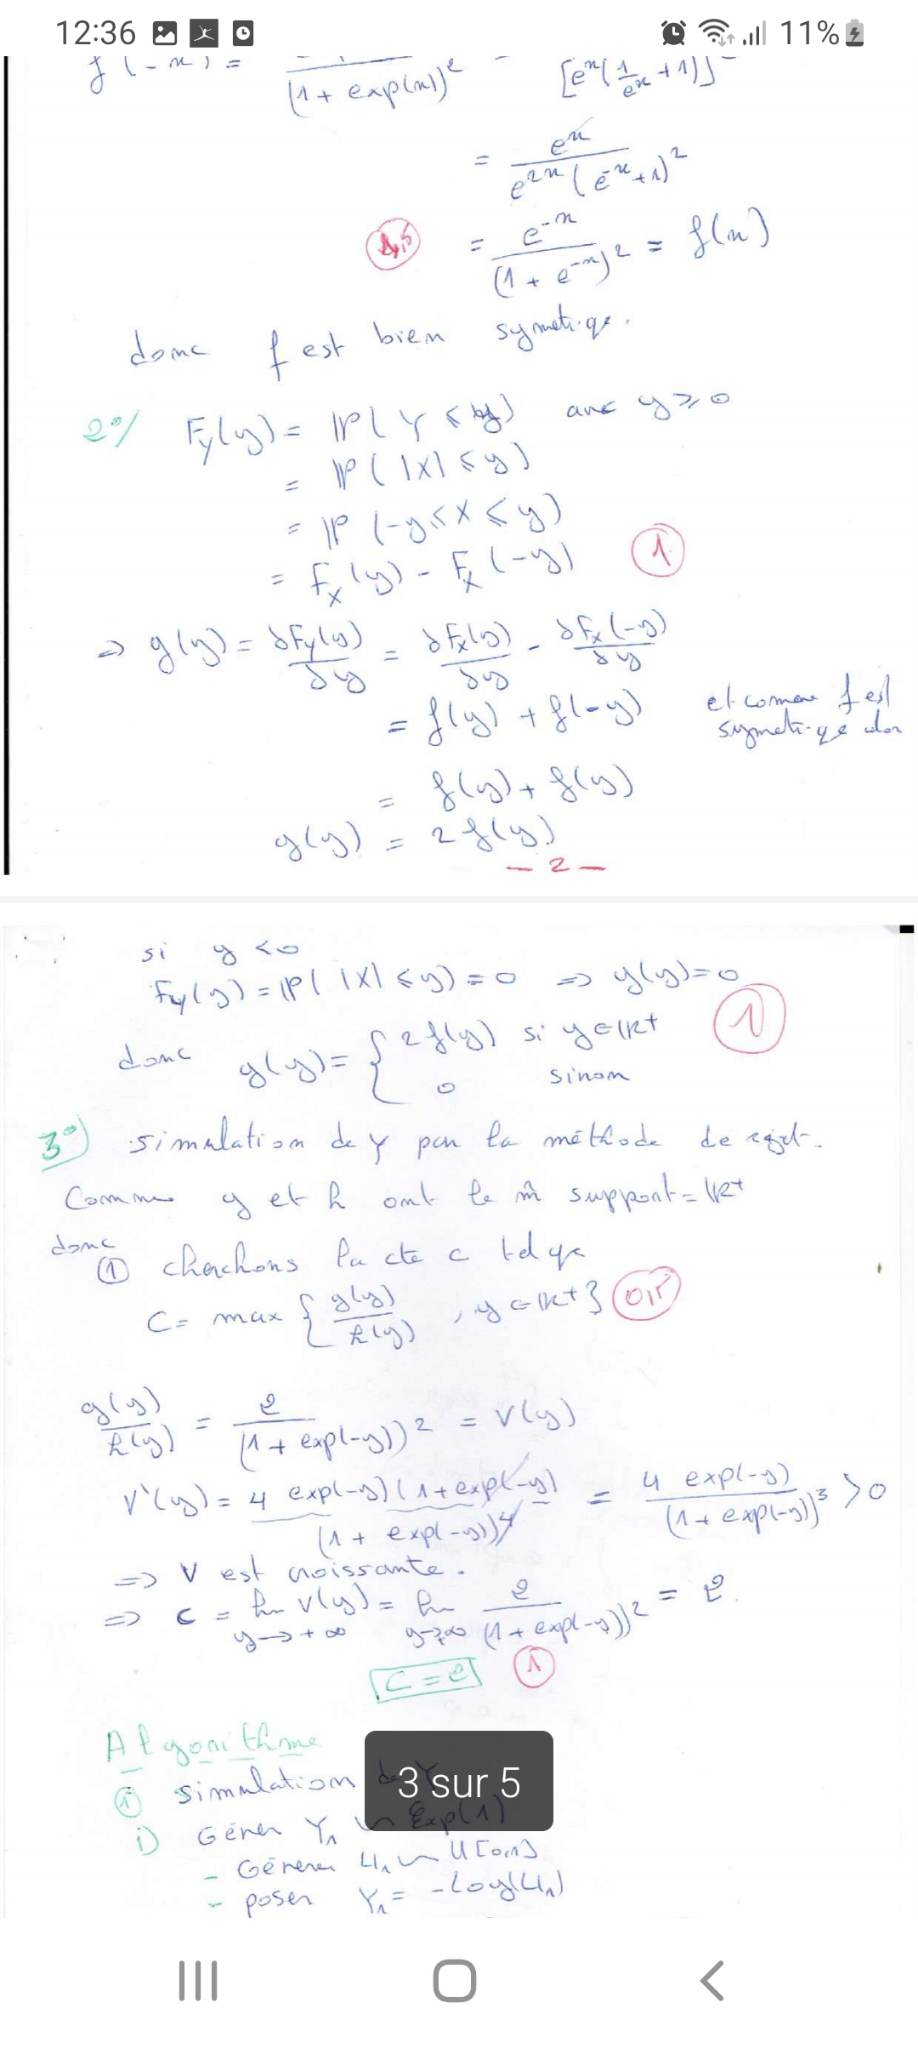 12:36 11%
f(-x) = 1 / (1 + exp(x))² = [eˣ(1/eˣ + 1)]²
= eˣ / e²ˣ(e⁻ˣ + 1)²
= e⁻ˣ / (1 + e⁻ˣ)² = f(x)
donc f est bien symetrique.
2°/ F_Y(y) = IP(Y ≤ y) avec y ≥ 0
= IP(|X| ≤ y)
= IP(-y ≤ X ≤ y)
= F_X(y) - F_X(-y) 1
⇒ g(y) = ∂F_Y(y)/∂y = ∂F_X(y)/∂y - ∂F_X(-y)/∂y
= f(y) + f(-y) et comme f est
symetrique
= f(y) + f(y)
g(y) = 2 f(y)
- 2 -
si y < 0
F_Y(y) = IP(|X| ≤ y) = 0 ⇒ g(y) = 0
donc g(y) = { 2 f(y) si y ∈ IR+ 1
0 sinon
3°) simulation de Y par la méthode de rejet.
Comme g et h ont le m̂ support = IR+
donc
① cherchons la cte c tel que
C = max { g(y)/h(y) , y ∈ IR+ } 0,5
g(y)/h(y) = 2 / (1 + exp(-y))² = V(y)
V'(y) = 4 exp(-y)(1 + exp(-y)) / (1 + exp(-y))⁴ = 4 exp(-y) / (1 + exp(-y))³ > 0
⇒ V est croissante.
⇒ c = lim y→+∞ V(y) = lim y→∞ 2 / (1 + exp(-y))² = 2.
C = 2 1
Algorithme
① simulation de Y
3 sur 5
i) Génerer Y₁ ∼ Exp(1)
- Génerer U₁ ∼ U[0,1]
- poser Y₁ = -Log(U₁)